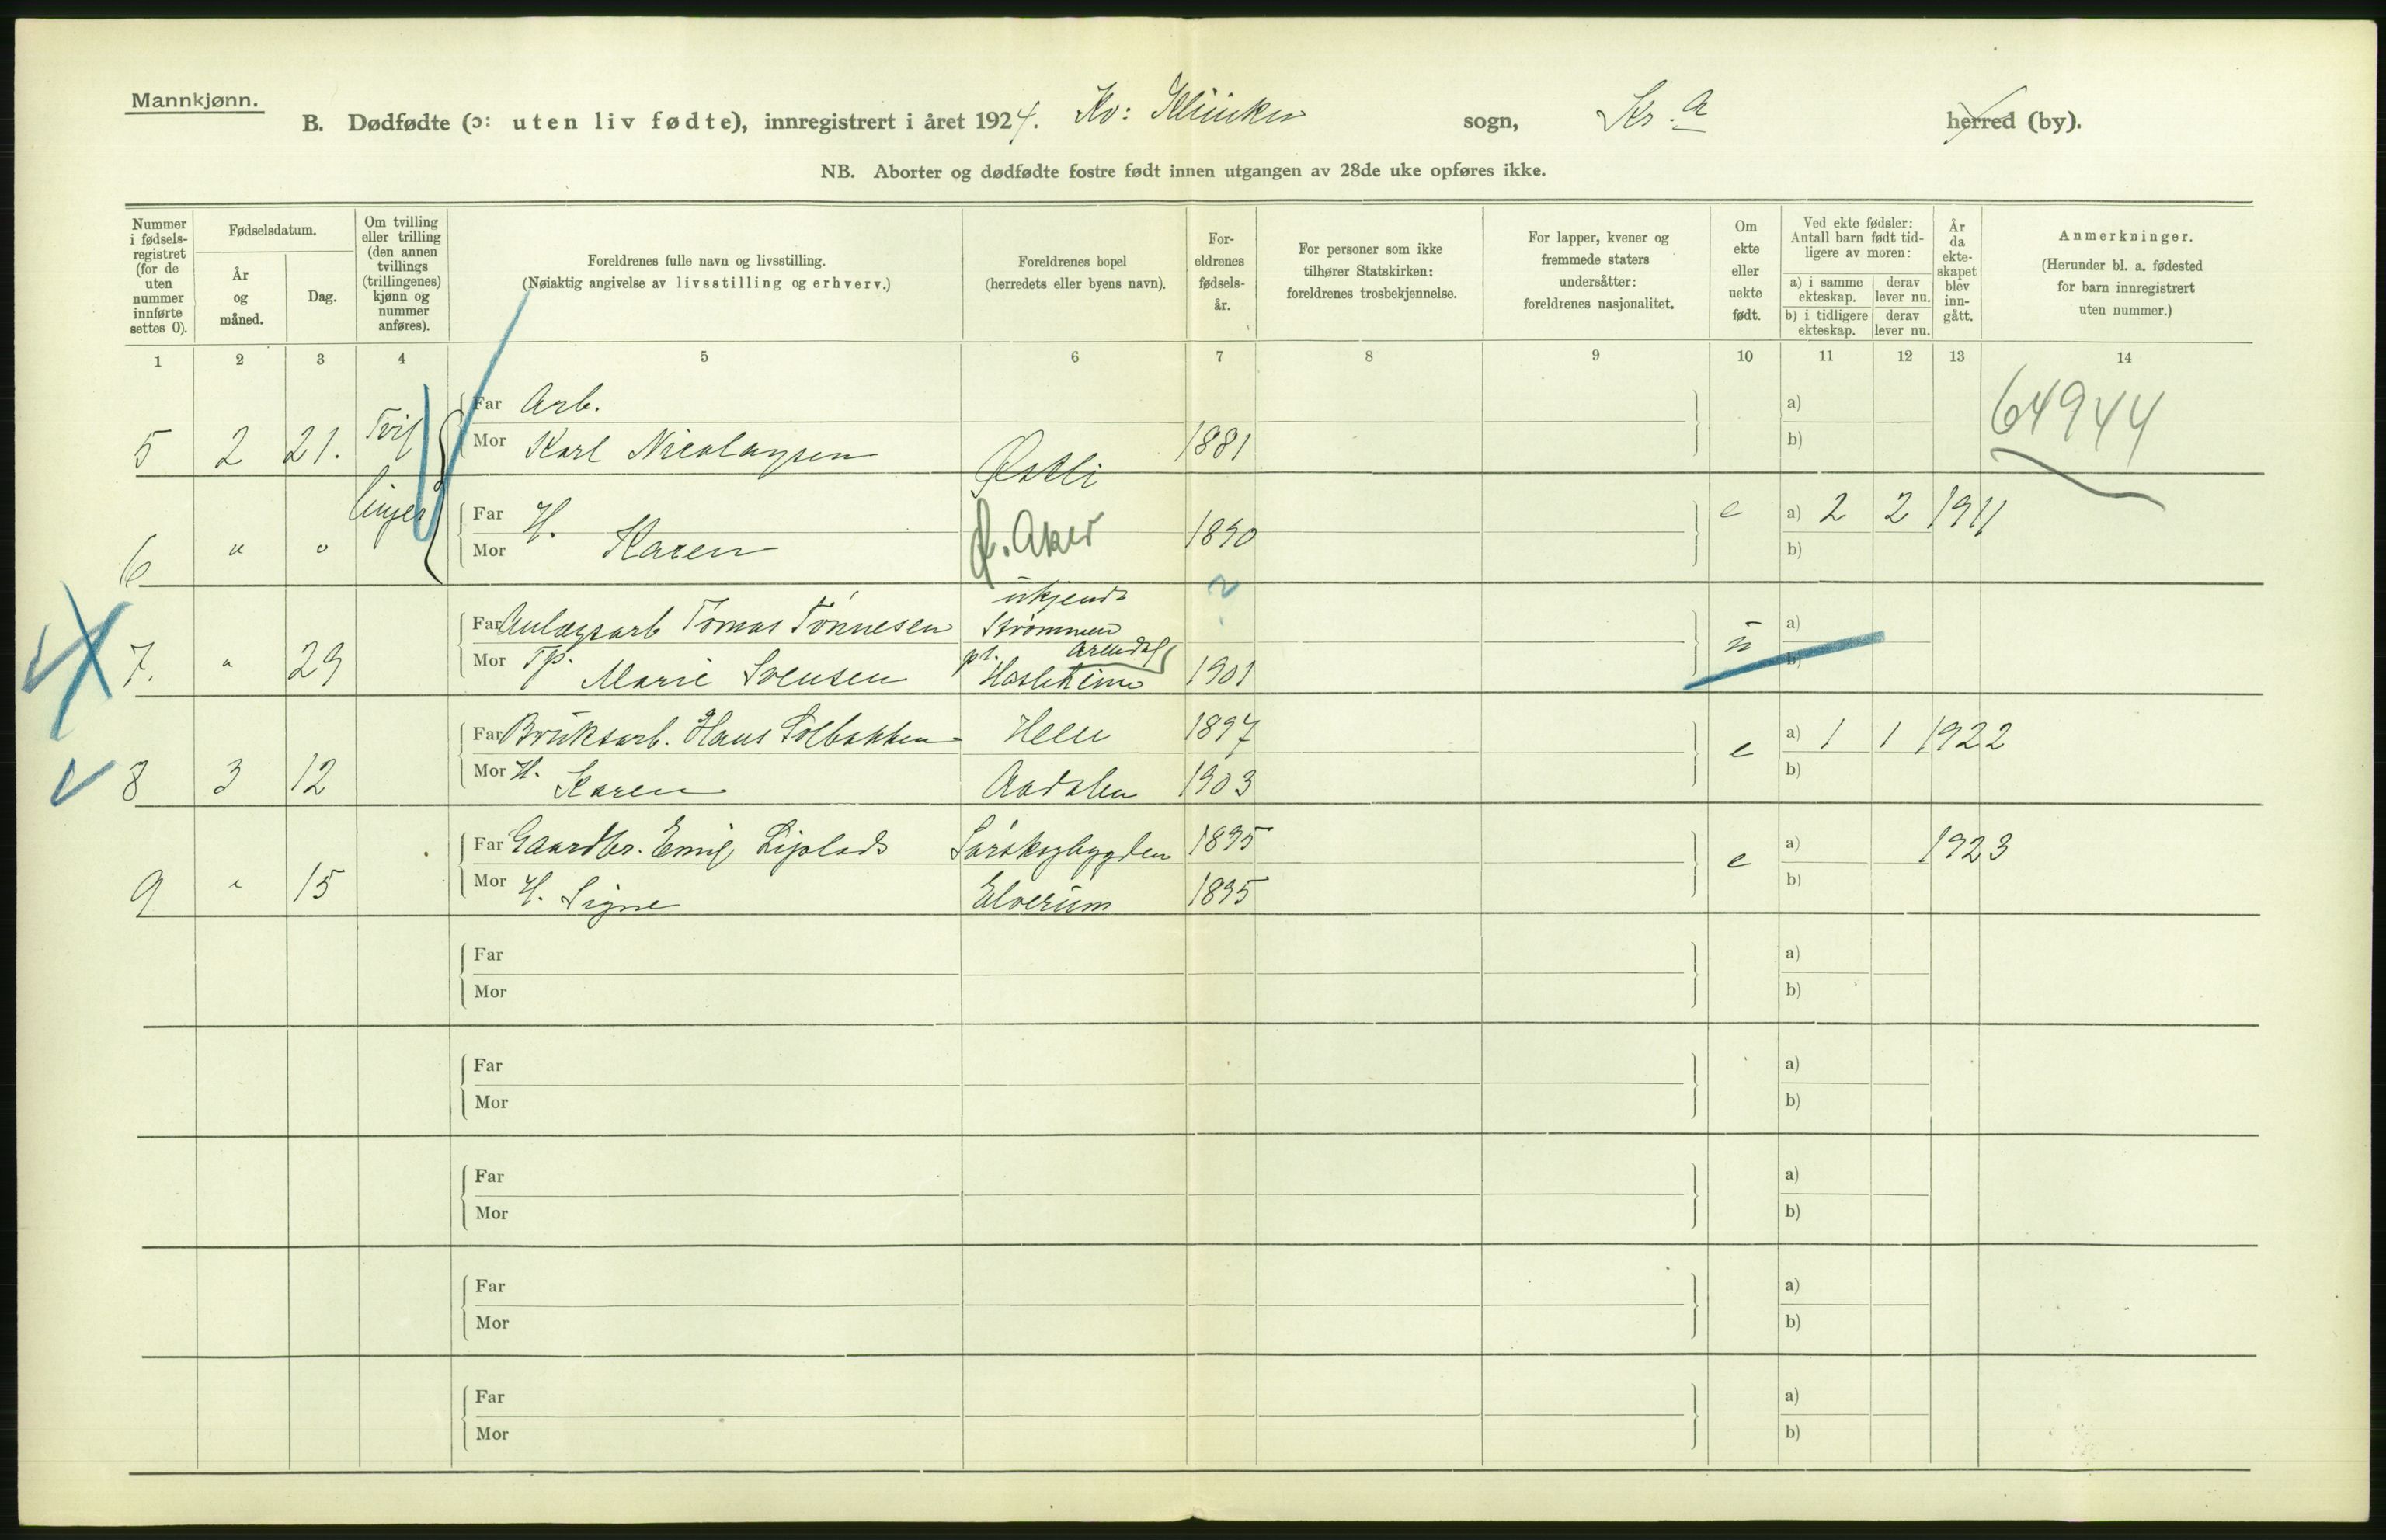 Mannkjønn.
B. Dødfødte (ɔ: uten liv fødte), innregistrert i året 1924. Kv: Klinken sogn, Kr.a herred (by).
NB. Aborter og dødfødte fostre født innen utgangen av 28de uke opføres ikke.
Nummer i fødsels-registret (for de uten nummer innførte settes 0).
Fødselsdatum.
År og måned.
Dag.
Om tvilling eller trilling (den annen tvillings (trillingenes) kjønn og nummer anføres).
Foreldrenes fulle navn og livsstilling.
(Nøiaktig angivelse av livsstilling og erhverv.)
Foreldrenes bopel
(herredets eller byens navn).
For-eldrenes fødsels-år.
For personer som ikke tilhører Statskirken: foreldrenes trosbekjennelse.
For lapper, kvener og fremmede staters undersåtter: foreldrenes nasjonalitet.
Om ekte eller uekte født.
Ved ekte fødsler: Antall barn født tid-ligere av moren:
a) i samme ekteskap.
derav lever nu.
b) i tidligere ekteskap.
derav lever nu.
År da ekte-skapet blev inn-gått.
Anmerkninger.
(Herunder bl. a. fødested for barn innregistrert uten nummer.)
1 2 3 4 5 6 7 8 9 10 11 12 13 14
Far Arb. a) 64944
5 2 21. Tvil Mor Karl Nicolaysen Østli 1881 b)
linger Far H. Ø. Aker e a) 2 2 1911
6 " " Mor Karen 1890 b)
ukjendt ?
Far Anlægsarb Tomas Tønnesen Strømmen u a)
Arendal
7. " 29 Mor Tp. Marie Svensen pt. Hasleheimo 1901 b)
Far Bruksarb. Hans Solbakken Hen 1897 e a) 1 1 1922
8 3 12 Mor H. Karen Aadalen 1903 b)
Far Gaardbr. Emil Liplads Sørskogbygden 1895 e a) 1923
9 " 15 Mor H. Signe Elverum 1895 b)
Far a)
Mor b)
Far a)
Mor b)
Far a)
Mor b)
Far a)
Mor b)
Far a)
Mor b)